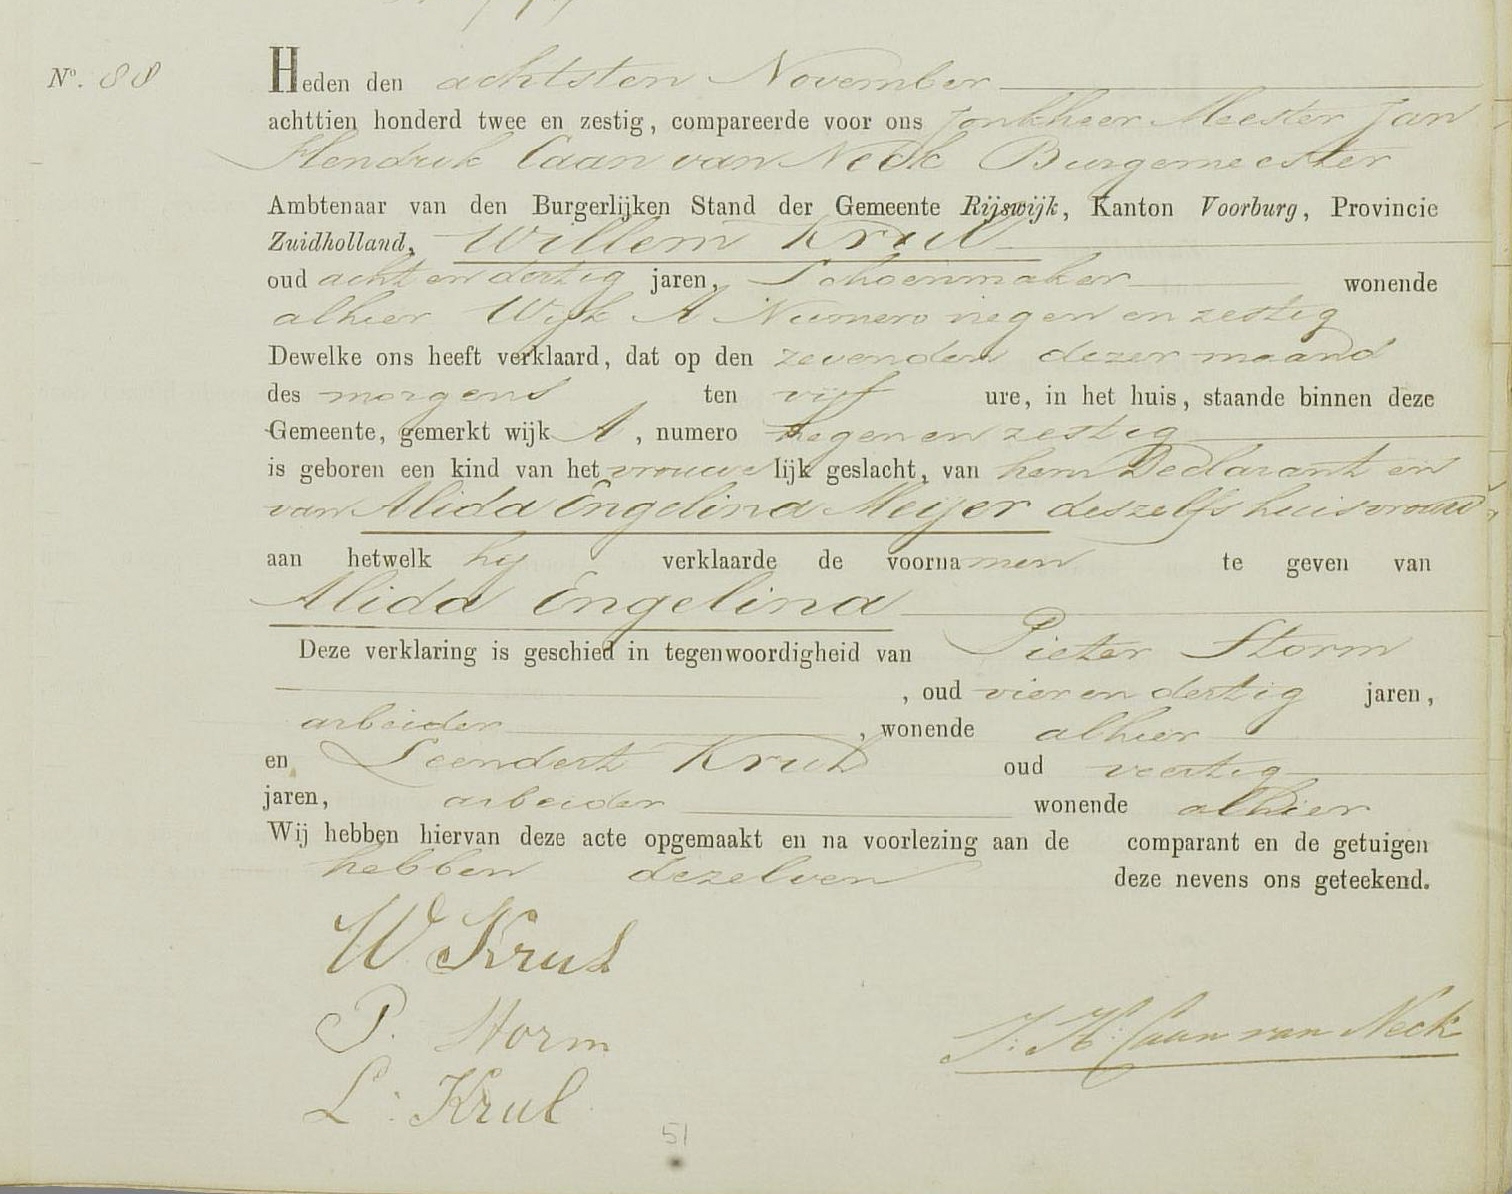 Nº. 88
Heden den achtsten November
achttien honderd twee en zestig, compareerde voor ons Jonkheer Meester Jan
Hendrik Caan van Neck Burgemeester
Ambtenaar van den Burgerlijken Stand der Gemeente Rijswijk, Kanton Voorburg, Provincie
Zuidholland, Willem Krul
oud acht en dertig jaren, Schoenmaker wonende
alhier Wijk A Numero negen en zestig
Dewelke ons heeft verklaard, dat op den zevenden dezer maand
des morgens ten vijf ure, in het huis, staande binnen deze
Gemeente, gemerkt wijk A, numero negen en zestig
is geboren een kind van het vrouwelijk geslacht, van hem Declarant en
van Alida Engelina Meijer deszelfs huisvrouw
aan hetwelk hij verklaarde de voornamen te geven van
Alida Engelina
Deze verklaring is geschied in tegenwoordigheid van Pieter Storm
, oud vier en dertig jaren,
arbeider, wonende alhier
en Leendert Krul oud veertig
jaren, arbeider wonende alhier
Wij hebben hiervan deze acte opgemaakt en na voorlezing aan de comparant en de getuigen
hebben dezelven deze nevens ons geteekend.
W Krul
P. Storm
J: H: Caan van Neck
L: Krul
51